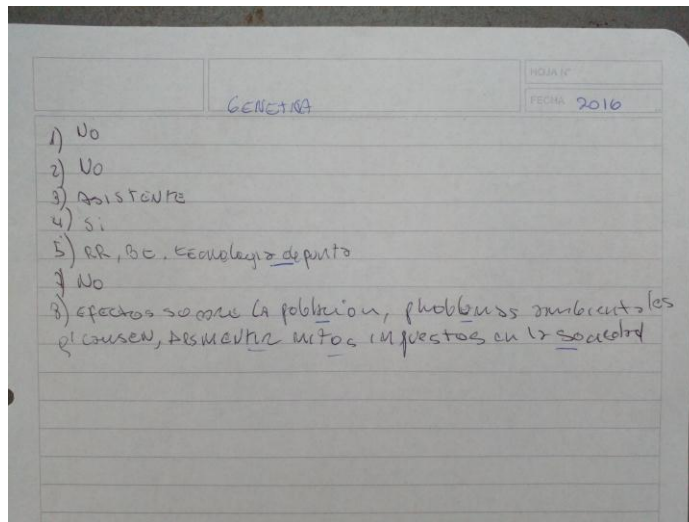 HOJA N°
GENETICA
FECHA 2016
1) No
2) No
3) ASISTENTE
4) Si
5) RR, BT, tecnologia de punta
7) No
8) EFECTOS sobre la población, problemas ambientales
q' causen, DESMENTIR mitos impuestos en la sociedad